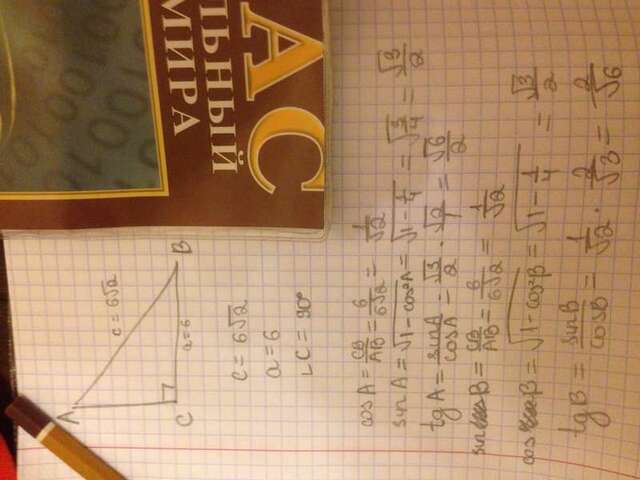 A
c = 6√2
C
a = 6
B
c = 6√2
a = 6
∟C = 90°
cosA = CB/AB = 6/6√2 = 1/√2
sinA = √(1 - cos²A) = √(1 - 1/4) = √(3/4) = √3/2
tgA = sinA/cosA = √3/2 · √2/1 = √6/2
sinB = CB/AB = 6/6√2 = 1/√2
cosB = √(1 - cos²B) = √(1 - 1/4) = √3/2
tgB = sinB/cosB = 1/√2 · 2/√3 = 2/√6
АС
ЛЬНЫЙ
МИРА